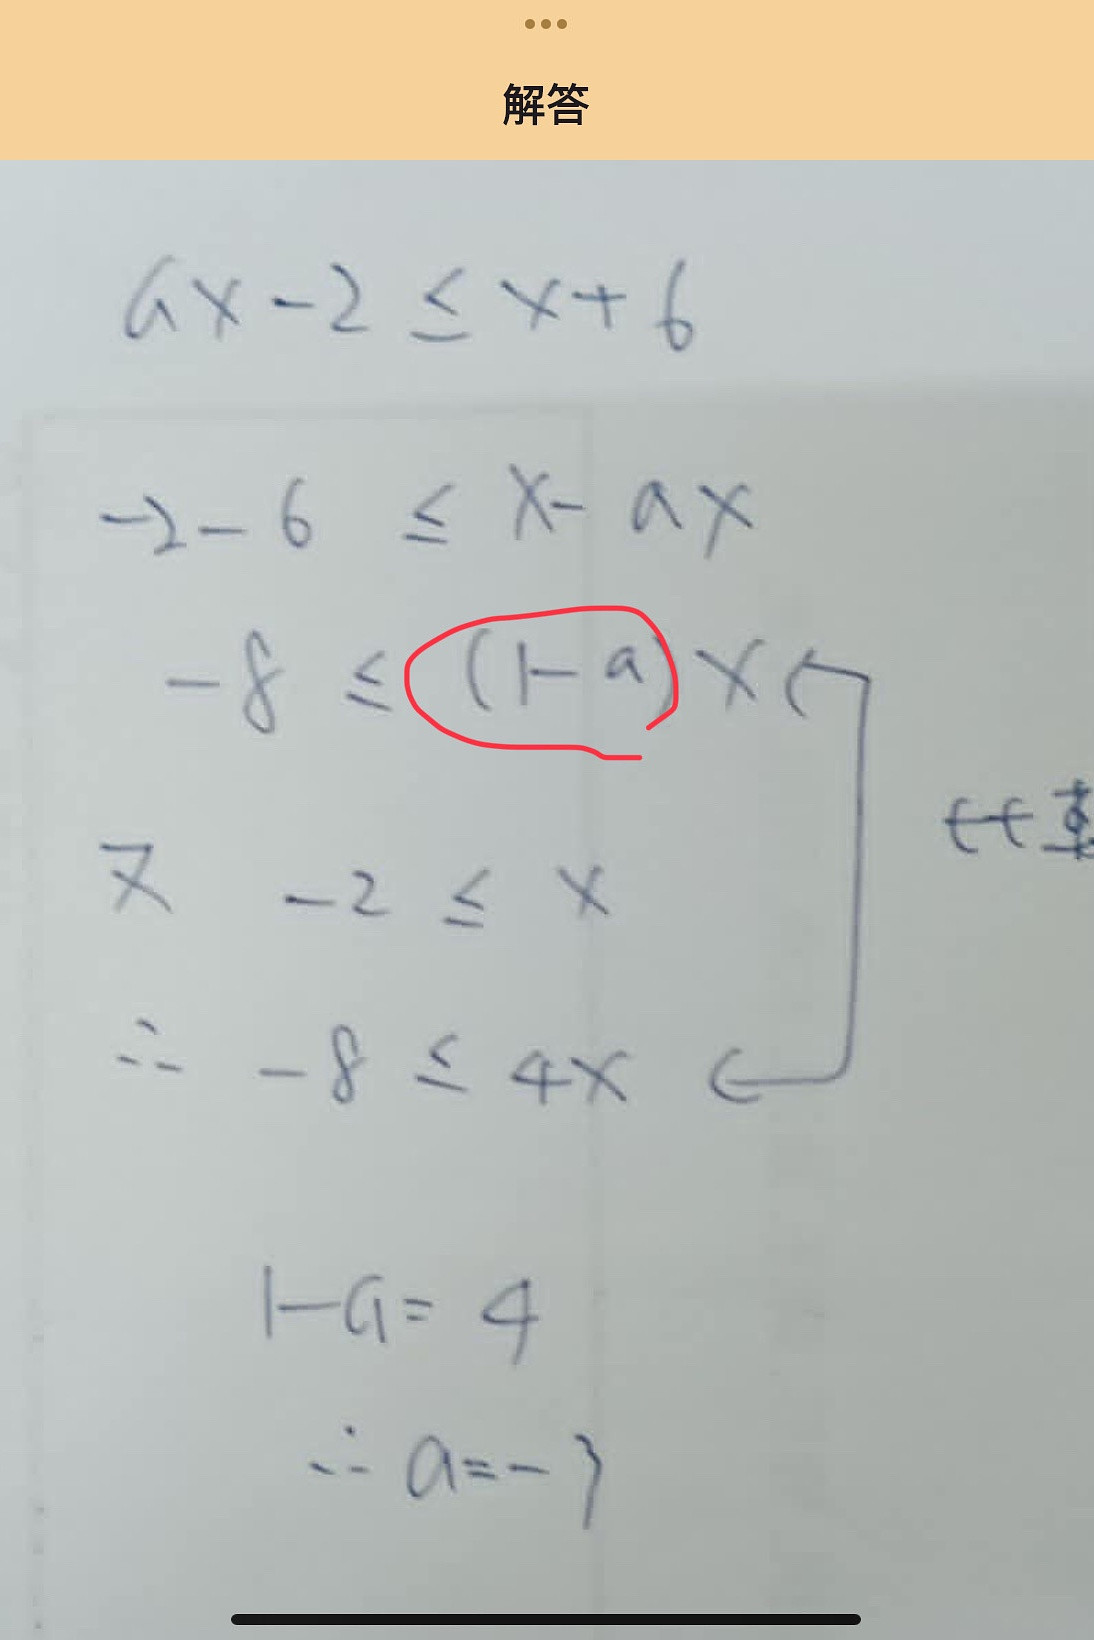 解答
ax-2 ≤ x+6
-2-6 ≤ x-ax
-8 ≤ (1-a)x
又 -2 ≤ x
∴ -8 ≤ 4x
1-a=4
∴ a=-3